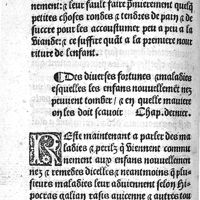 nement: ⁊ leur fault faire premierement quelq̃
petites choses rondes ⁊ tendres de pain ⁊ de
succre pour les accoustumer peu a peu a la
viande: ⁊ ce suffire quãt a la premiere nour
riture de lenfant.
¶ Des diuerses fortunes ⁊ maladies
esquelles les enfans nouuellemẽt nez
peuuent tomber: ⁊ en quelle maniere
on les doit scauoir Chap. dernier.
REste maintenant a parler des ma
ladies ⁊ perilz q̃ viennent commune
ment aux enfans nouuellement
nez ⁊ remedes dicelles: ⁊ neantmoins q̃ plu
sieurs maladies leur aduiennent selon Hi
pocras galien rasis auicenne ⁊ autres tou